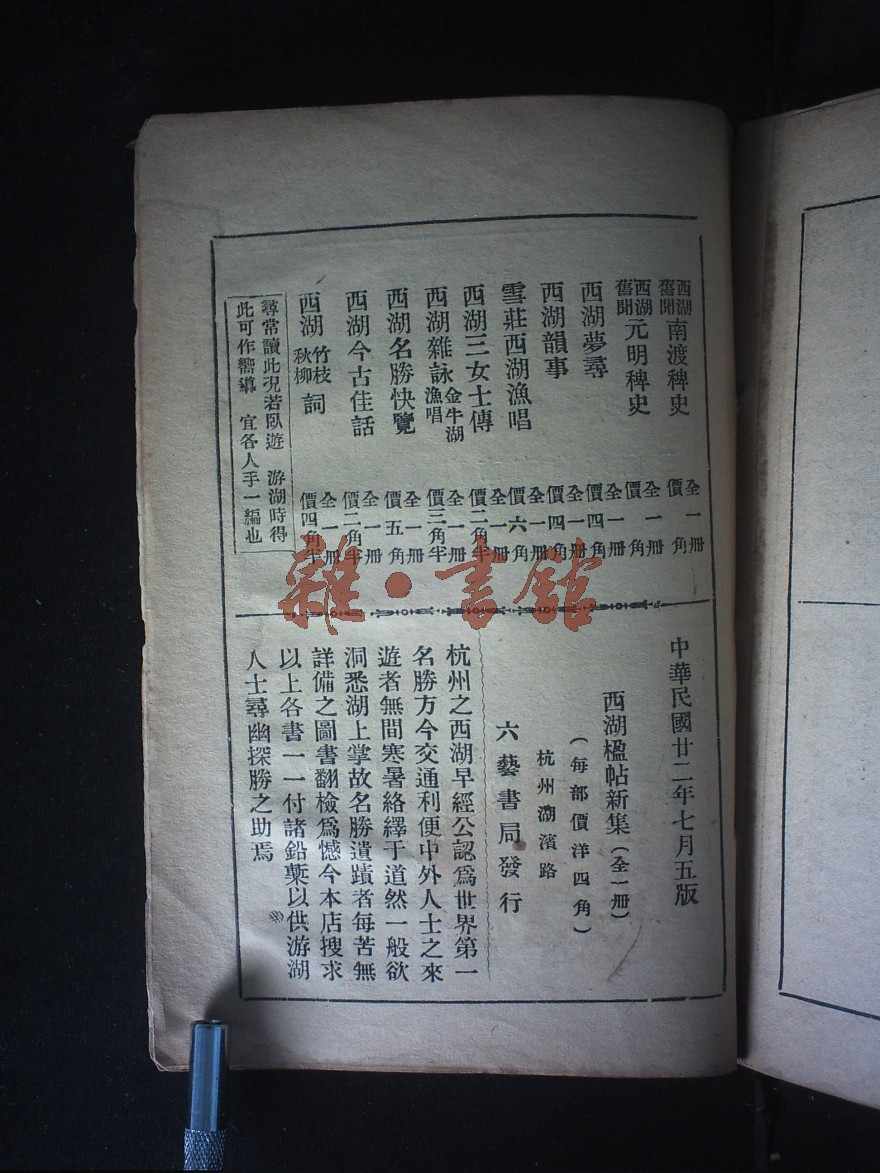 西湖舊聞 南渡稗史 全一冊 價一角
西湖舊聞 元明稗史 全一冊 價一角
西湖夢尋 全一冊 價四角
西湖韻事 全一冊 價四角
雪莊西湖漁唱 全一冊 價六角
西湖三女士傳 全一冊 價二角半
西湖雜詠 金牛湖漁唱 全一冊 價三角半
西湖名勝快覽 全一冊 價五角
西湖今古佳話 全一冊 價二角半
西湖 竹枝 秋柳 詞 全一冊 價四角半
尋常讀此況若臥遊 游湖時得
此可作嚮導 宜各人手一編也
雜·書館
中華民國廿二年七月五版
西湖楹帖新集(全一冊)
(每部價洋四角)
杭州湖濱路
六藝書局發行
杭州之西湖早經公認爲世界第一
名勝方今交通利便中外人士之來
遊者無間寒暑絡繹于道然一般欲
洞悉湖上掌故名勝遺蹟者每苦無
詳備之圖書翻檢爲憾今本店搜求
以上各書一一付諸鉛槧以供游湖
人士尋幽探勝之助焉